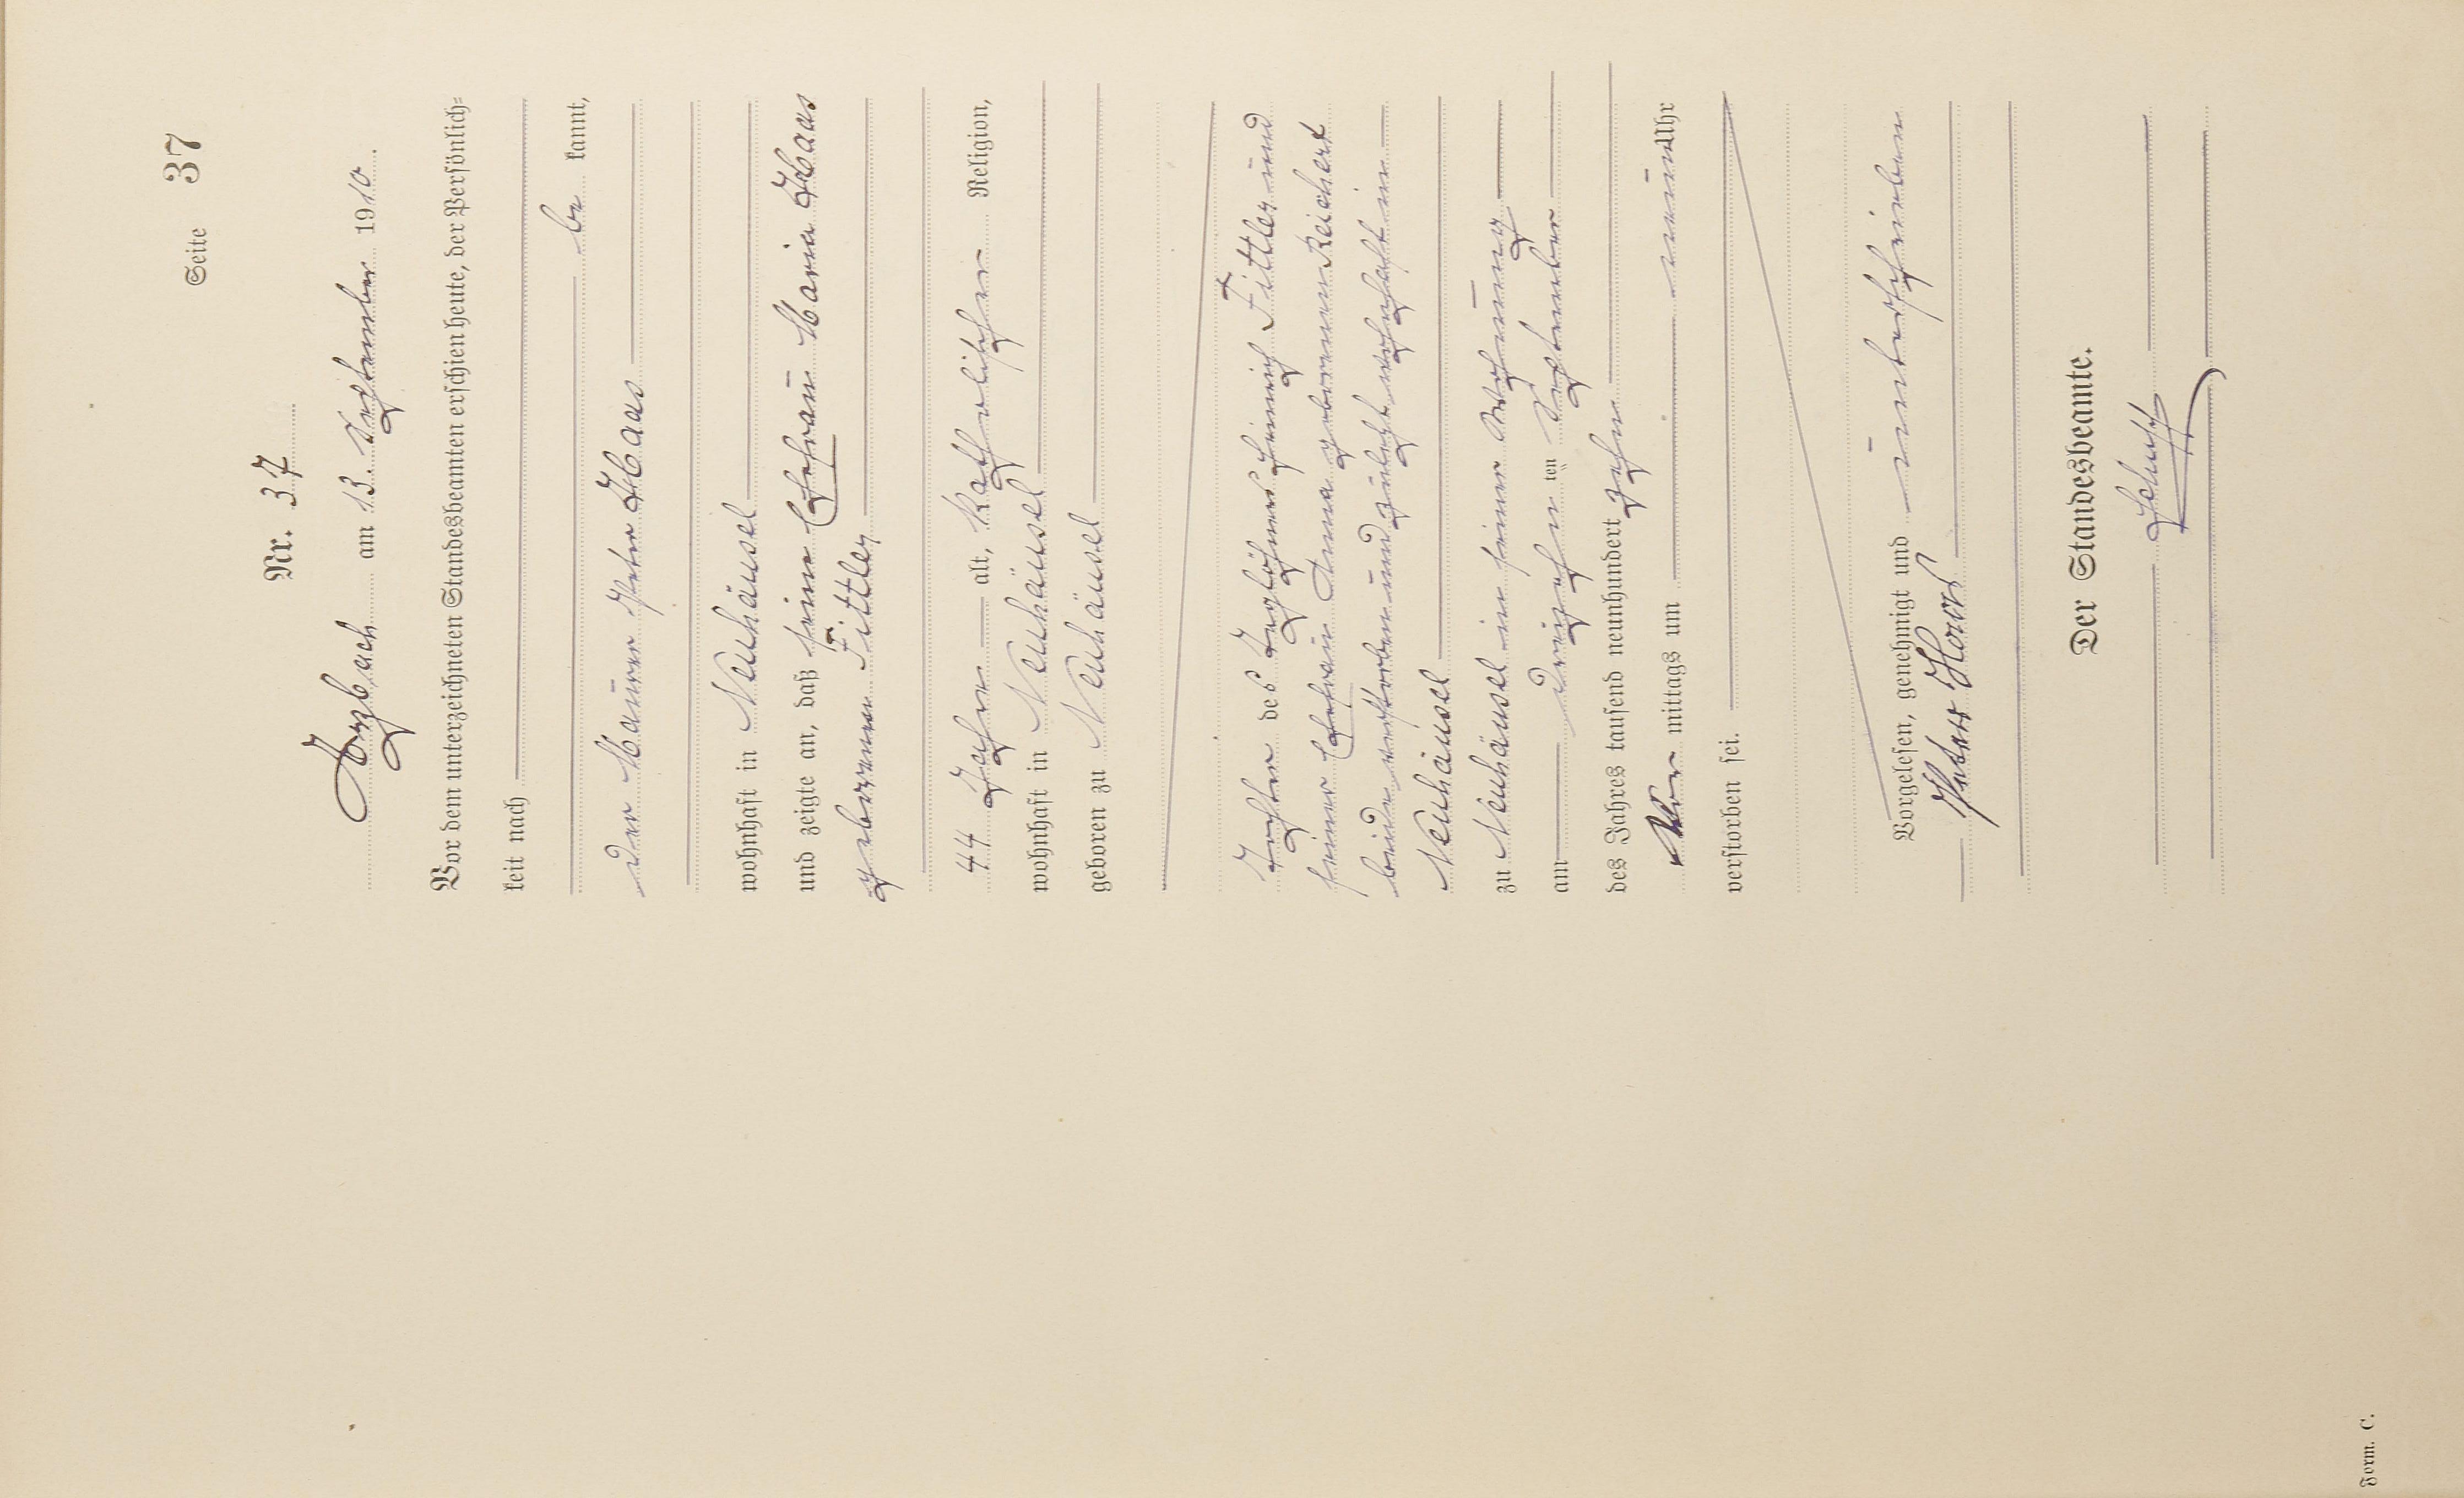 Seite 37
Nr. 37
Arzbach am 13. September 1910.
Vor dem unterzeichneten Standesbeamten erschien heute, der Persönlich=
keit nach
be kannt,
der Maurer Peter Haas
wohnhaft in Neuhäusel
und zeigte an, daß seine Ehefrau Maria Haas
geborene Fittler
44 Jahre alt, katholischer Religion,
wohnhaft in Neuhäusel
geboren zu Neuhäusel
Tochter des Taglöhners Heinrich Fittler und
seiner Ehefrau Anna geborenen Reichert
beide verstorben und zuletzt wohnhaft in
Neuhäusel
zu Neuhäusel in seiner Wohnung
am dreizehnten September
des Jahres tausend neunhundert zehn
Vor mittags um neun Uhr
verstorben sei.
Vorgelesen, genehmigt und unterschrieben
Peter Haas
Der Standesbeamte.
Form. C.